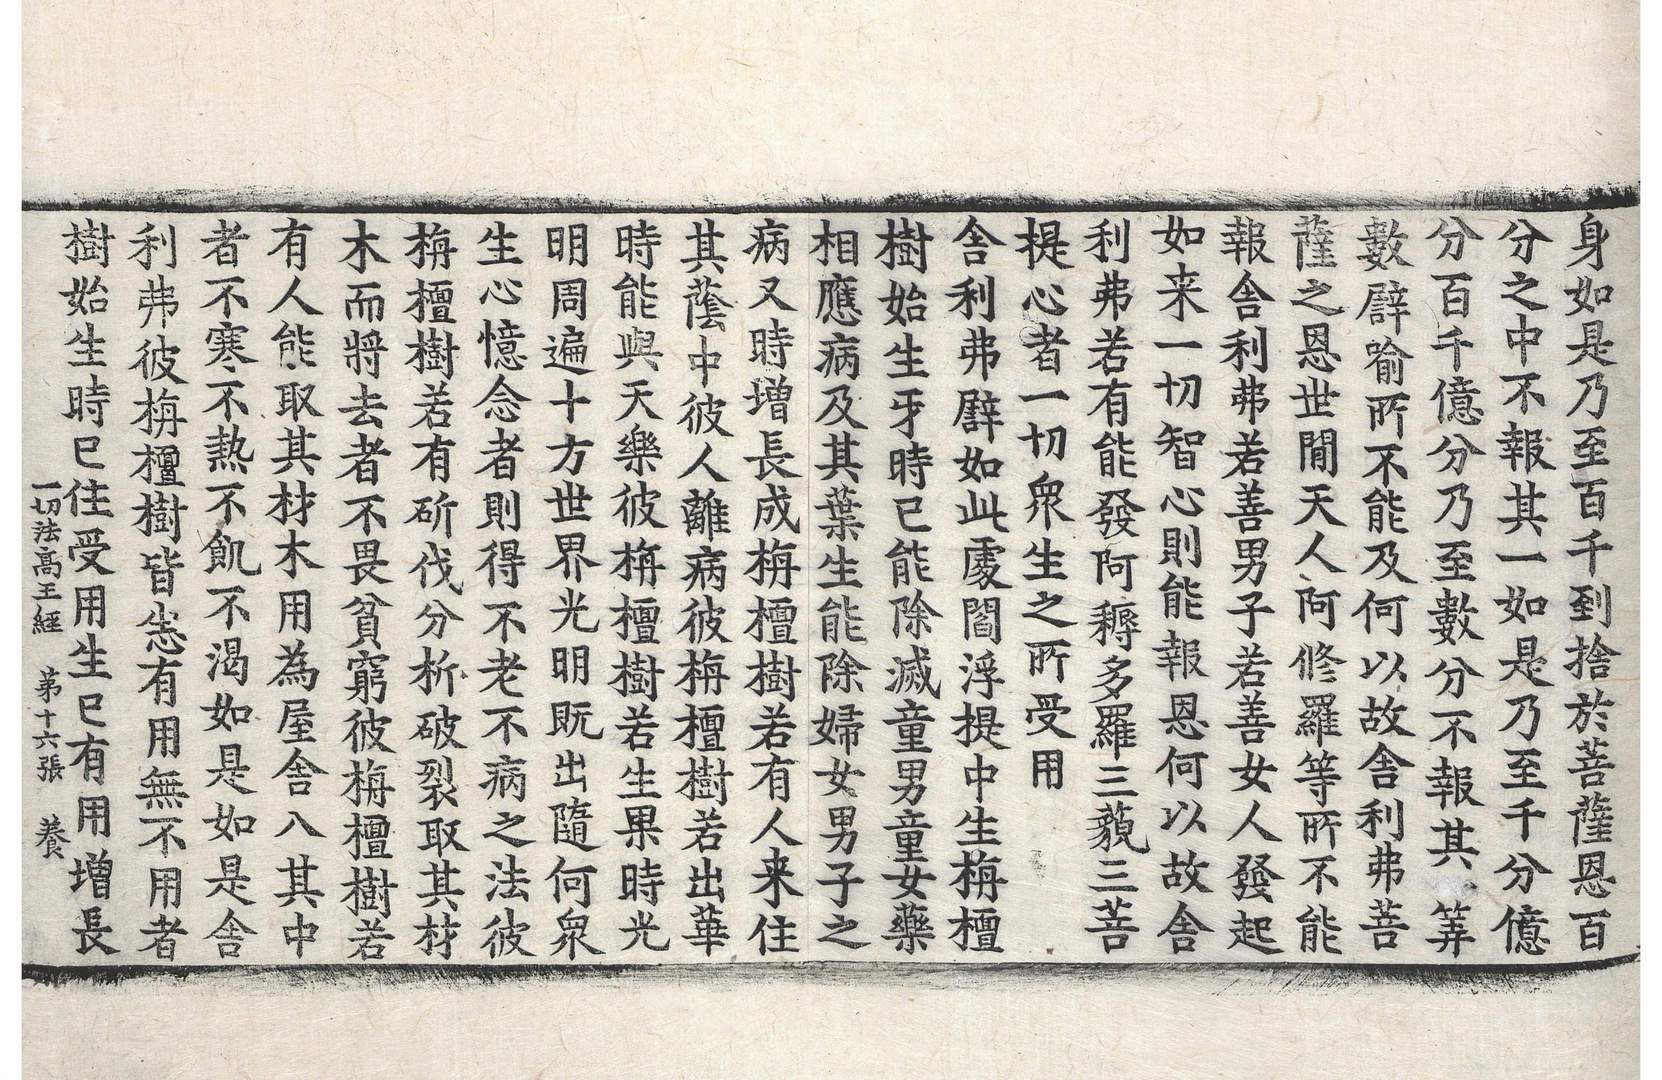 身如是乃至百千到捨於菩薩恩百
分之中不報其一如是乃至千分億
分百千億分乃至數分不報其筭
數譬喻所不能及何以故舍利弗菩
薩之恩世間天人阿修羅等所不能
報舍利弗若善男子若善女人發起
如来一切智心則能報恩何以故舍
利弗若有能發阿耨多羅三藐三菩
提心者一切衆生之所受用
舍利弗譬如此處閻浮提中生栴檀
樹始生牙時已能除滅童男童女藥
相應病及其葉生能除婦女男子之
病又時增長成栴檀樹若有人来住
其蔭中彼人離病彼栴檀樹若出華
時能與天樂彼栴檀樹若生果時光
明周遍十方世界光明既出隨何衆
生心憶念者則得不老不病之法彼
栴檀樹若有斫伐分析破裂取其材
木而將去者不畏貧窮彼栴檀樹若
有人能取其材木用為屋舍入其中
者不寒不熱不飢不渴如是如是舍
利弗彼栴檀樹皆悉有用無不用者
樹始生時已住受用生已有用增長
一切法髙王經 第十六張 養